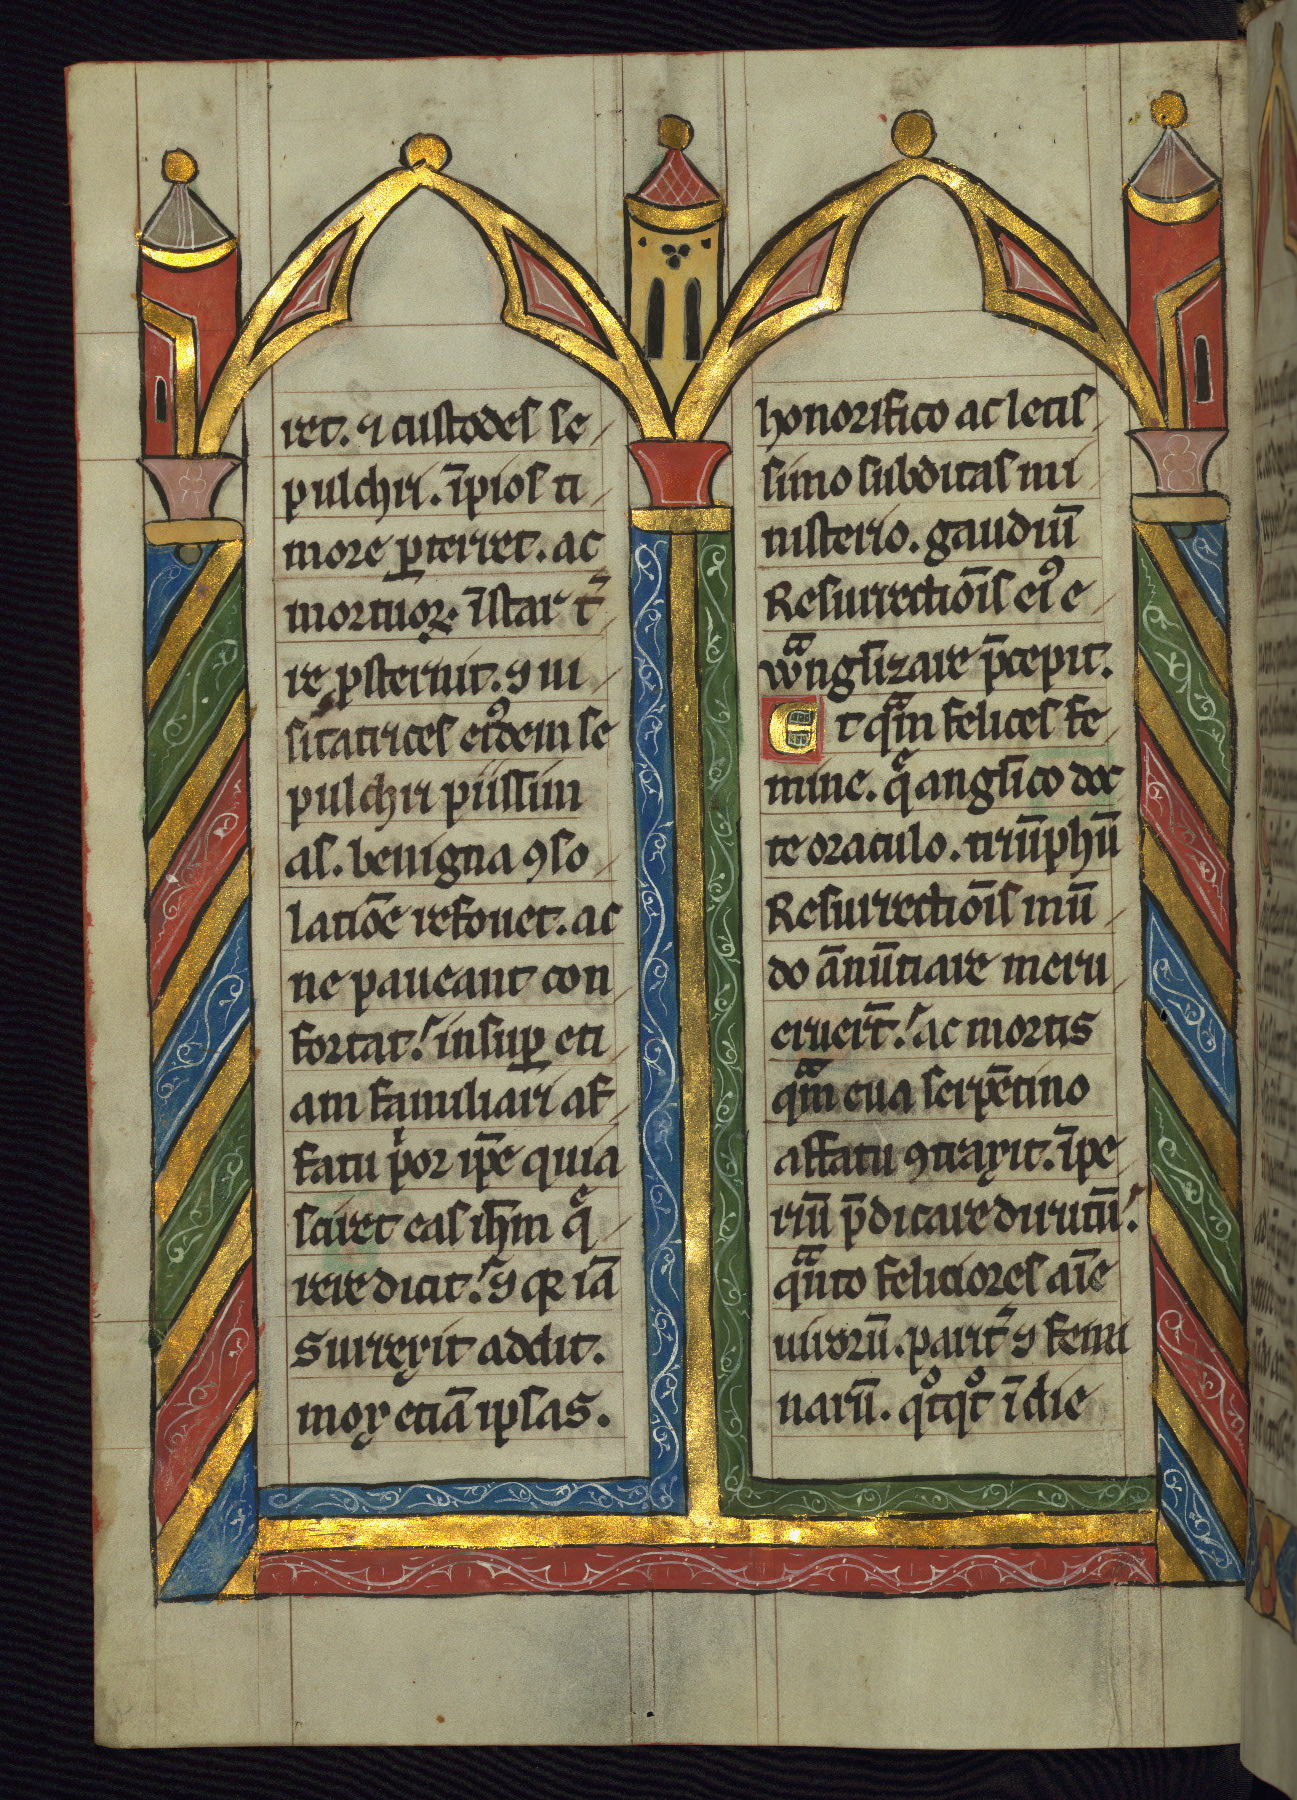 ret. ⁊ custodes se
pulchri. īpios ti
more ꝑterret. ac
mortuoꝝ īstar t᷑
re ꝓsternit. ꝯ ui
sitatrices eiꝰdem se
pulchri piissim
as. benigna ꝯso
latiōe refouet. ac
ne paueant con
fortat. insuꝑ eti
am familiari af
fatu p̍or ip̄e quia
sciret eas ih̄m q̄
rere dicit. ꝯ qꝛ iā
surrexit addit.
mox etiā ipsas.
honorifico ac letis
simo subditas mi
nisterio. gaudiū
Resurrectiōis eiꝰ e
wͣnglizare p̄cepit.
Et qͣm felices fe
mine. qͤ anglico doc
te oraculo. triūphū
Resurrectiōis mū
do ānūtiare meru
erūt. ac mortis
qͣm eua serpētino
affatu ꝯtraxit. īpe
riū p̄dicare dirutū.
qͣnto feliciores aīe
uiroꝝ. parit᷑ ꝯ femi
narū. qͦtqͦt ī die